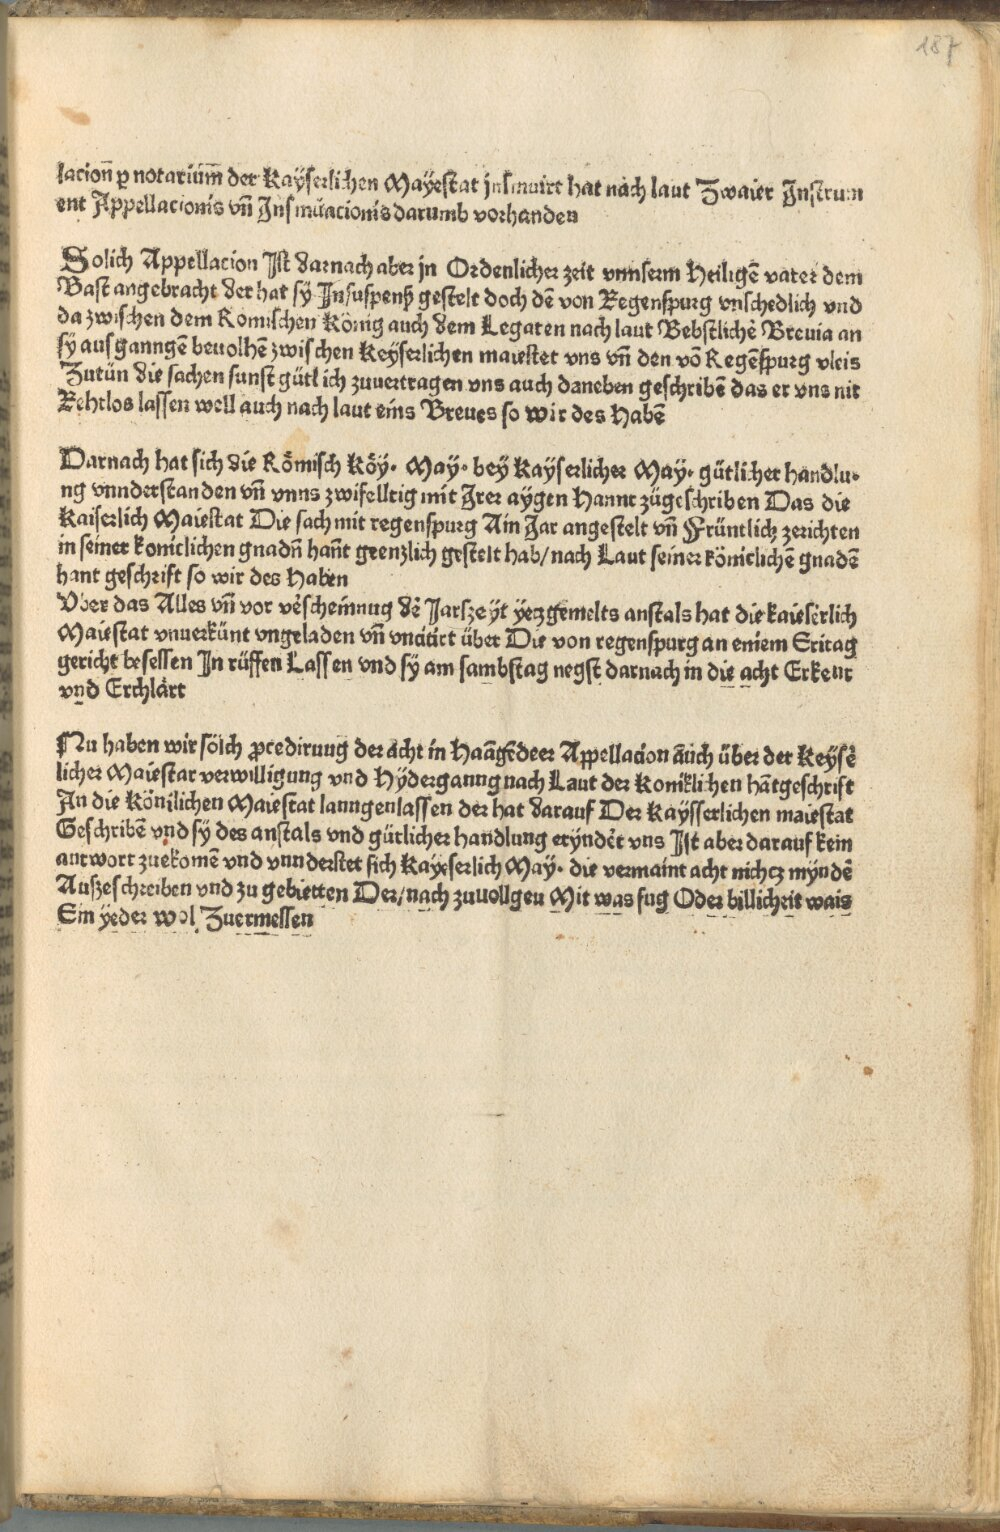 187
lacioñ ꝑ notarium̃ der Kaÿserlichen Maÿestat jnsinuirt hat nach laut Zwaier Instrum
ent Appellacionis vñ Insinuacionis darumb vorhanden
Solich Appellacion Ist darnach aber jn Ordenlicher zeit vnnserm Heiligẽ vater dem
Bast angebracht der hat sÿ Insuspenß gestelt doch dẽ von Regenspurg vnschedlich vnd
da zwischen dem Römischen König auch dem Legaten nach laut Bebstlichẽ Brevia an
sy aus ganngẽ beuolhẽ zwischen Keÿserlichen maiestet vns vñ den võ Regẽspurg vleis
Zutün die sachen sunst gütlich zuuertragen vns auch daneben geschribẽ das er vns nit
Rehtlos lassen well auch nach laut eins Breues so wir des Habẽ
Darnach hat sich die Römisch Köÿ. Maÿ. bey Kayserlicher May. gütlicher handlu⸗
ng vnnderstanden vñ vnns zwifelltig mit Jrer aÿgen Hannt zügeschriben Das die
Kaiserlich Maiestat Die sach mit regenspurg Ain Jar angestelt vñ Früntlich zerichten
in seiner koniclichen gnadñ hañt grenzlich gestelt hab/ nach Laut seiner köniclichẽ gnadẽ
hant geschrift so wir des Haben
Vber das Alles vñ vor vẽscheinnug dẽ Jarszeyt ÿetzgemelts anstals hat die kaieserlich
Maiestat vnuerkünt vngeladen vñ vnãtirt über Die von regenspurg an einem Eritag
gericht besessen In rüffen Lassen vnd sÿ am sambstag negst darnach in die acht Erkent
vnd Erchlärt
Nu haben wir sölch ꝓcedirung der acht in Haãgẽdeer Appellacion auch über der Keÿsẽ
licher Maiestat verwilligung vnd Hÿdergaung nach Laut der Koniklichen hãtgeschrift
In die Könilichen Maiestat lanngenlassen der hat darauf Der Kaysserlichen maiestat
Geschribẽ vnd sÿ des anstals vnd gütlicher handlung erÿndẽt vns Ist aber darauf kein
antwort zuekomẽ vnd vnnderstet sich Kayeserlich Maÿ. die vermaint acht nichcz mÿndẽ
Außzeschreiben vnd zu gebietten Der/ nach zuuollgen Mit was fug Oder billicheit wais
Ein ÿeder wol Zuermessen